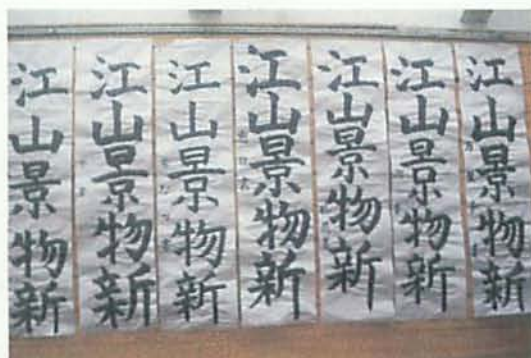 江山景物新
江山景物新
江山景物新
江山景物新
江山景物新
江山景物新
江山景物新